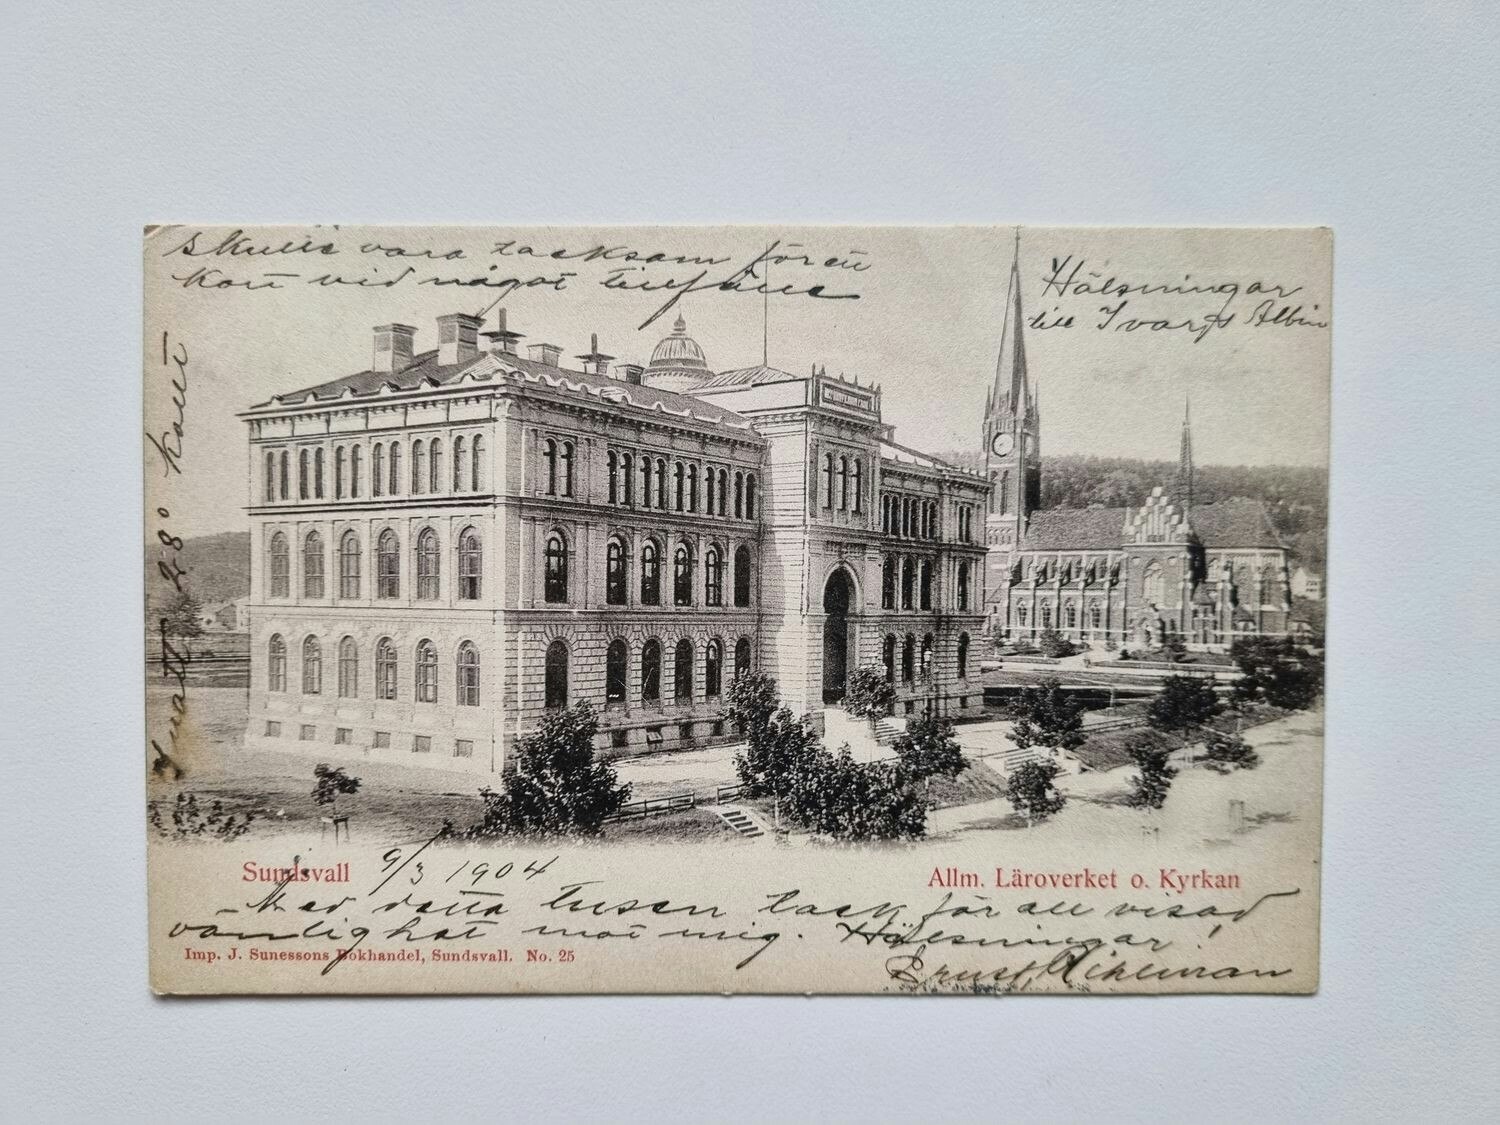 skulle vara tacksam för ett
kort vid något tillfälle
Hälsningar
till Ivar, Albin
I natt 28° kallt
Sundsvall 9/3 1904
Allm. Läroverket o. Kyrkan
Med detta tusen tack för all visad
vänlighet mot mig. Hälsningar!
Imp. J. Sunessons Bokhandel, Sundsvall. No. 25
Ernst